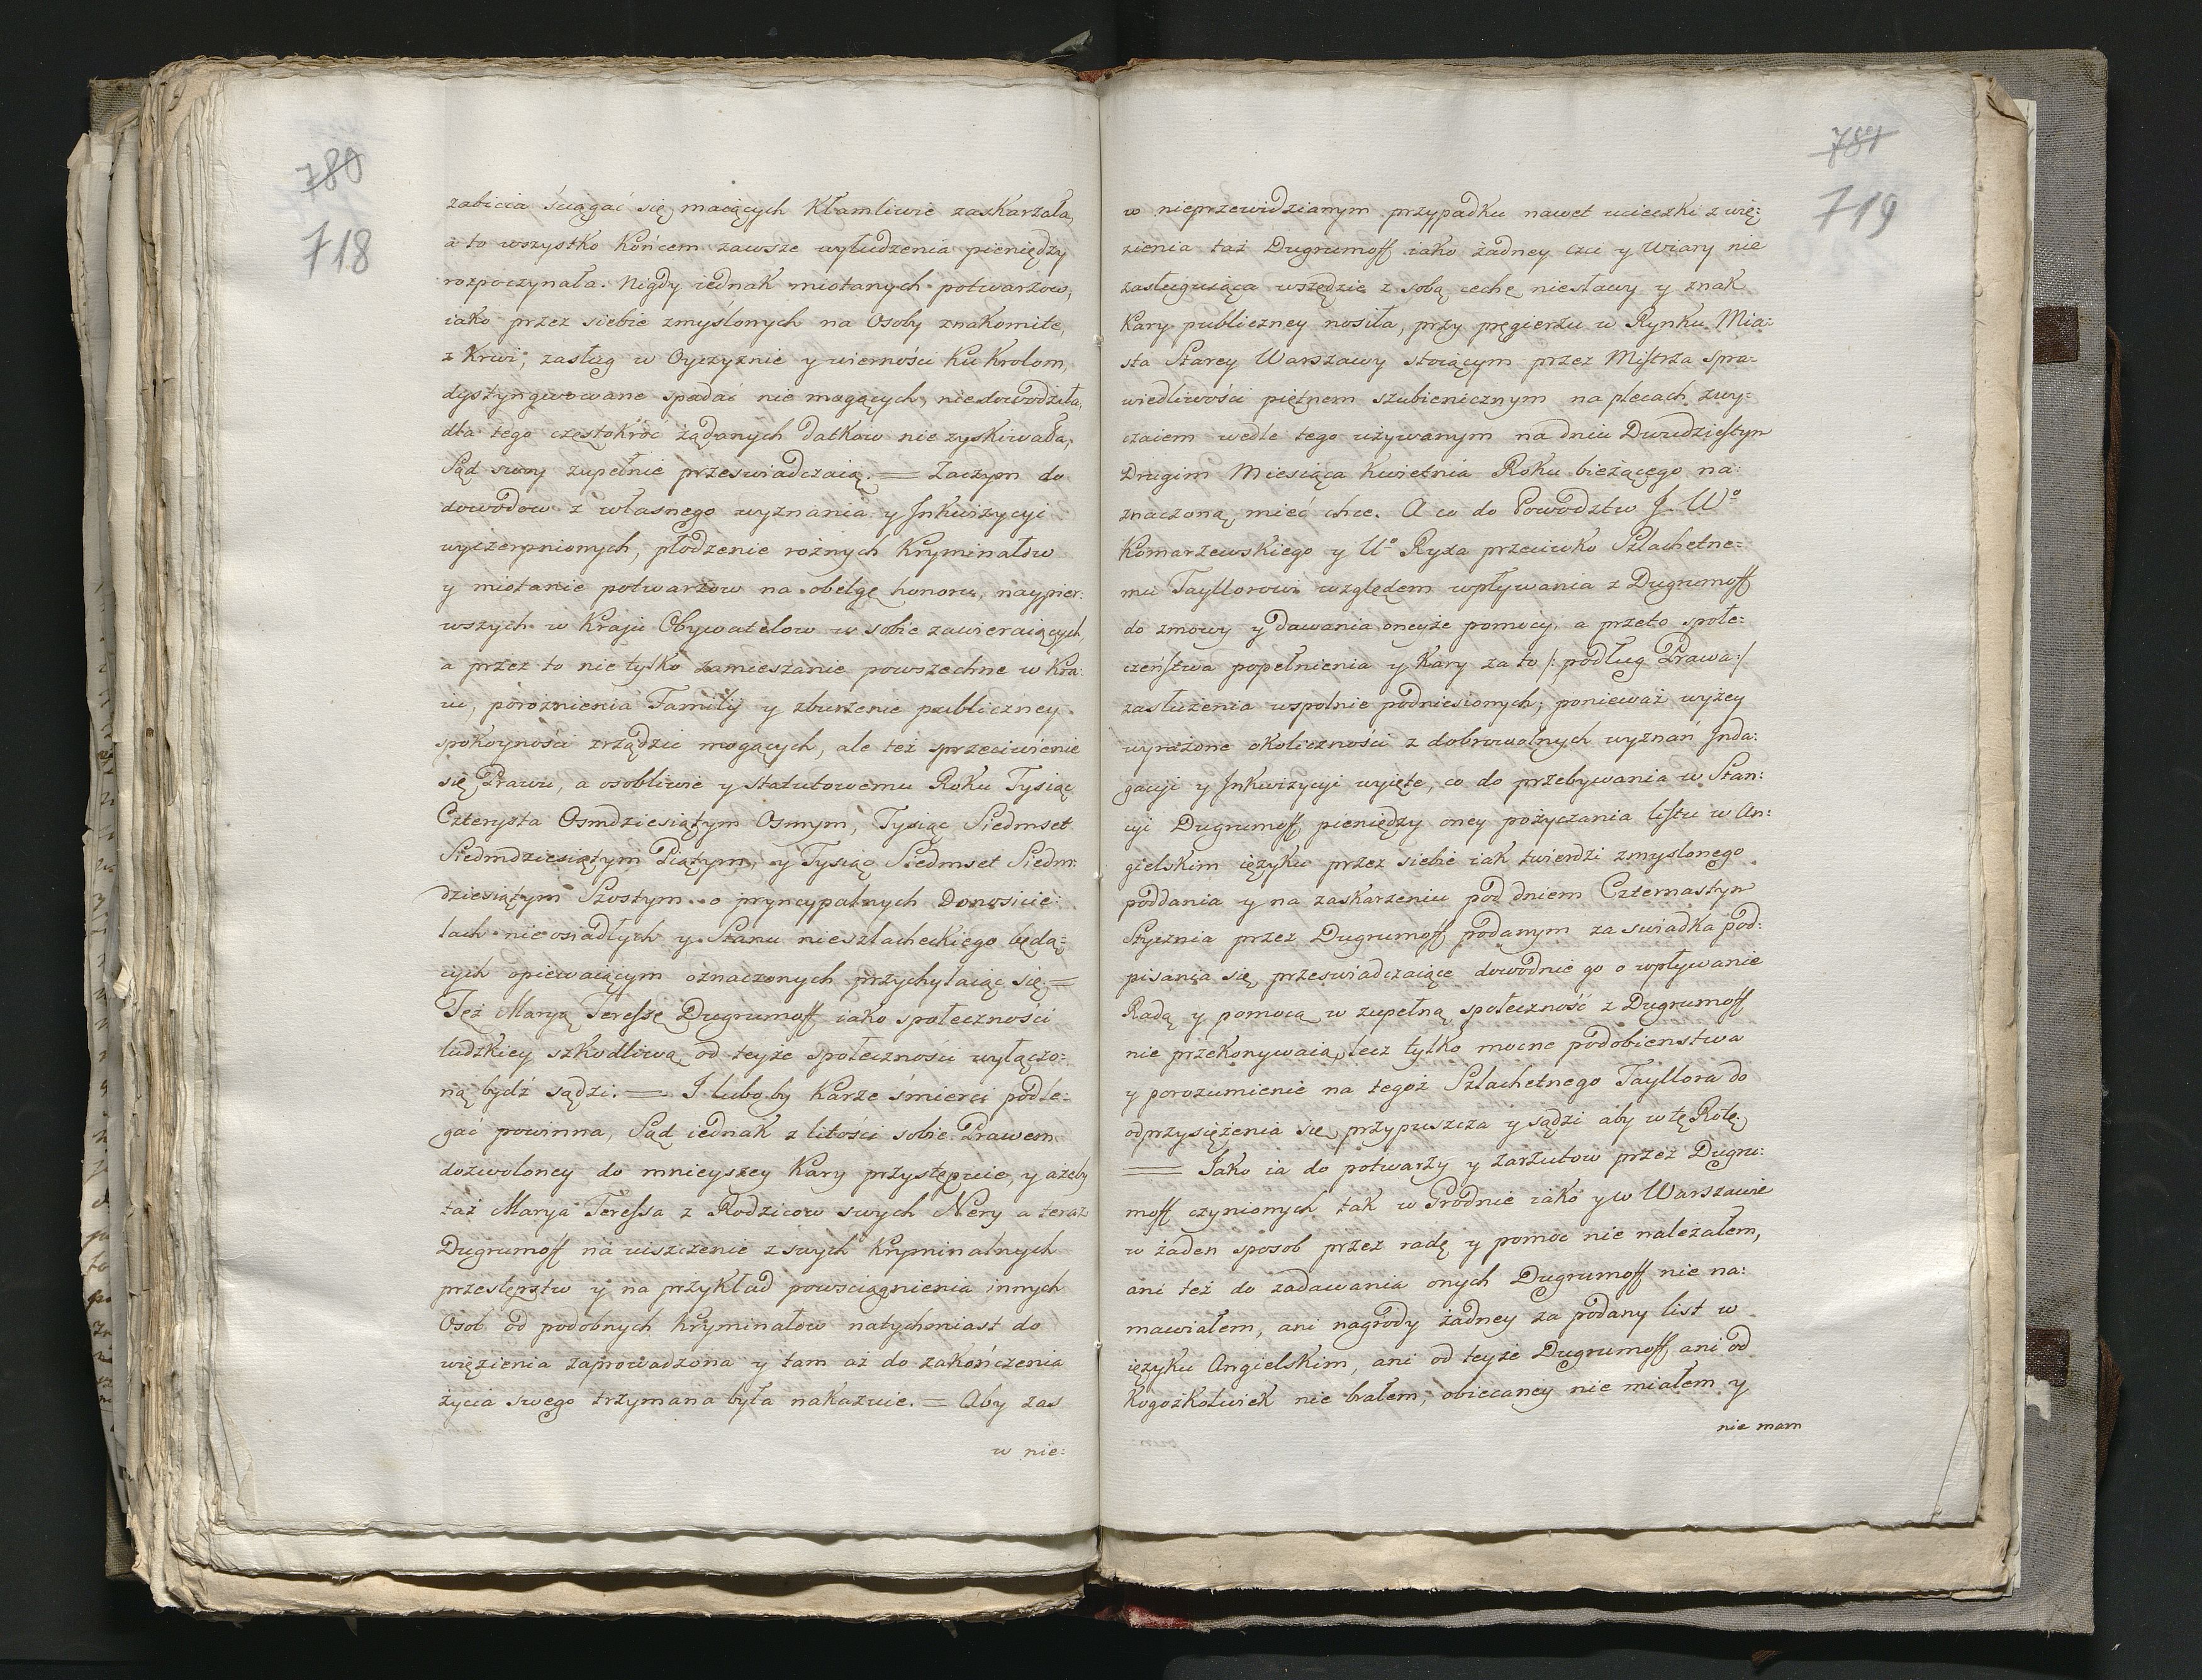 780
718
zabicia sciągać się maiących Kłamliwie zaskarzała,
a to wszystko Końcem zawsze wyłudzenia pieniędzy
rozpoczynała. Nigdy iednak miotanych potwarzow,
iako przez siebie zmyślonych na Osoby znakomite,
z Krwi, zasług w Oyczyznie y wierności Ku Krolom,
dystyngwowane spadać nie mogących, nie dowodziła,
dla tego częstokroć żądanych datkow nie zyskiwała,
Sąd swoy zupełnie przeswiadczaią. = Zaczym do
dowodow z własnego wyznania y Inkwizycyi
wyczerpnionych, płodzenie rożnych Kryminałow
y miotanie potwarzow na obelgę honoru, naypier:
wszych w Kraju Obywatelow w sobie zawieraiących,
a przez to nie tylko zamieszanie powszechne w Kra:
iu, porożnienia Familij y zburzenie publiczney
spokoyności zrządzic mogących, ale też sprzeciwienie
się Prawu, a osobliwie y Statutowemu Roku Tysiąc
Czterysta Osmdziesiątym Osmym, Tysiąc Siedmset
Siedmdziesiątym Piątym, y Tysiąc Siedmset Siedm:
dziesiątym Szostym o pryncypalnych Donosicie:
lach nieosiadłych y Stanu nieszlacheckiego będą=
cych opiewaiącym oznaczonych przychylaiąc się =
Tęż Maryą Teressę Dugrumoff iako społeczności
ludzkiey szkodliwą od teyże społeczności wyłączo:
ną bydź sądzi. = I luboby Karze śmierci podle:
gać powinna, Sąd iednak z litości sobie Prawem
dozwoloney do mnieyszey Kary przystępuie, y ażeby
taż Marya Teressa z Rodzicow swych Nery a teraz
Dugrumoff na uiszczenie z swych Kryminalnych
przestępstw y na przykład powsciągnienia innych
Osob od podobnych Kryminałow natychmiast do
więzienia zaprowadzona y tam aż do zakończenia
życia swego trzymana była nakazuie. = Aby zas
w nie:
781
719
w nieprzewidzianym przypadku nawet ucieczki z wię:
zienia taż Dugrumoff iako żadney czci y wiary nie
zasługuiąca wszędzie z sobą cechę niesławy y znak
Kary publiczney nosiła, przy pręgierzu w Rynku Mia:
sta Starey Warszawy stoiącym przez Mistrza spra=
wiedliwości piętnem szubienicznym na plecach zwy:
czaiem wedle tego używanym na dniu Dwudziestym
Drugim Miesiąca Kwietnia Roku bieżącego na:
znaczoną mieć chce. A co do Powodztw J. Wo
Komarzewskiego y Uo Ryxa przeciwko Szlachetne=
mu Tayllorowi względem wpływania z Dugrumoff
do zmowy y dawania oneyże pomocy, a przeto społe=
czeństwa popełnienia y Kary za to /: podług Prawa :/
zasłużenia wspolnie podniesionych; ponieważ wyżey
wyrażone okoliczności z dobrowolnych wyznań Inda:
gacyi y Inkwizycyi wyięte, co do przebywania w Stan:
cyi Dugrumoff pieniędzy oney pożyczania listu w An:
gielskim ięzyku przez siebie iak twierdzi zmyslonego
poddania y na zaskarzeniu pod dniem Czternastym
Stycznia przez Dugrumoff podanym za swiadka pod:
pisania się, przeswiadczaiące dowodnie go o wpływanie
Radą y pomocą w zupełną społeczność z Dugrumoff
nie przekonywaią, lecz tylko mocne podobienstwa
y porozumienie na tegoż Szlachetnego Tayllora do
odprzysiężenia się przypuszcza y sądzi aby w tę Rotę
= Jako ia do potwarzy y zarzutow przez Dugru:
moff czynionych tak w Grodnie iako y w Warszawie
w żaden sposob przez radę y pomoc nie należałem,
ani też do zadawania onych Dugrumoff nie na:
mawiałem, ani nagrody żadney za podany list w
ięzyku Angielskim, ani od teyże Dugrumoff ani od
Kogożkolwiek nie brałem, obiecaney nie miałem y
nie mam